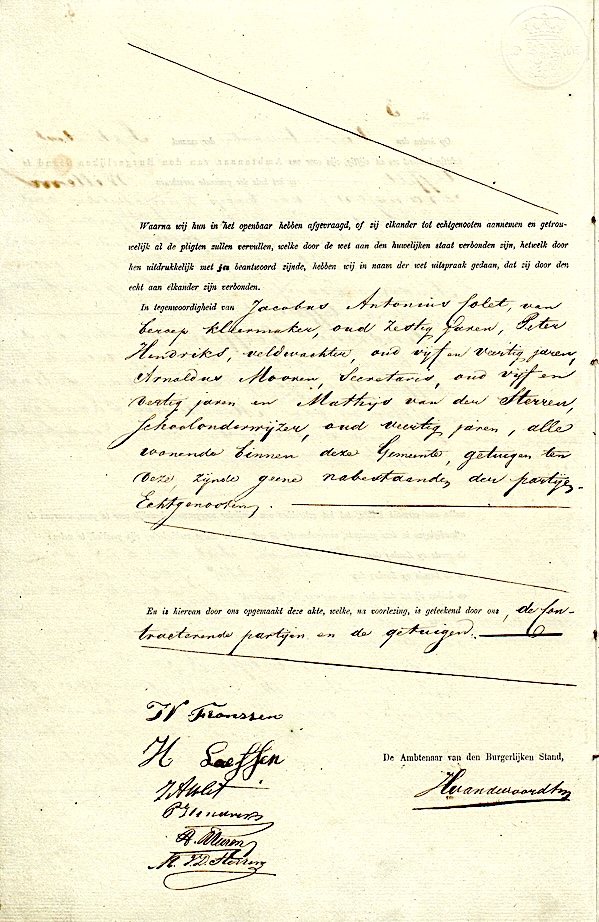 Waarna wij hun in het openbaar hebben afgevraagd, of zij elkander tot echtgenooten aannemen en getrou-
welijk al de pligten zullen vervullen, welke door de wet aan den huwelijken staat verbonden zijn, hetwelk door
hen uitdrukkelijk met jaa beantwoord zijnde, hebben wij in naam der wet uitspraak gedaan, dat zij door den
echt aan elkander zijn verbonden.
In tegenwoordigheid van Jacobus Antonius Solet, van
beroep kleermaker, oud zestig Jaren, Peter
Hendriks, veldwachter, oud vijf en veertig jaren,
Arnoldus Mooren, Secretaris, oud vijf en
veertig jaren en Mathijs van der Sterren,
Schoolonderwijzer, oud veertig jaren, alle
wonende binnen deze Gemeente, getuigen ten
deze, zijnde geene nabestaanden der partijen
Echtgenooten.
En is hiervan door ons opgemaakt deze akte, welke, na voorlezing, is geteekend door ons, de Con-
tracterende partijen en de getuigen.
W Franssen
H Laessen
De Ambtenaar van den Burgerlijken Stand,
P Hendriks
A. Mooren
M. V. D. Sterren